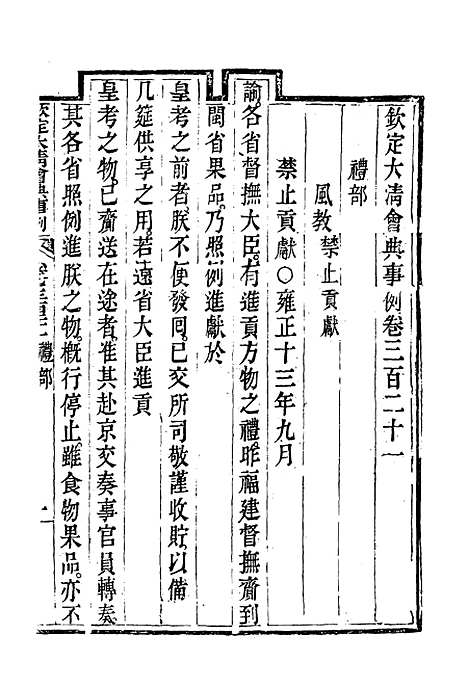 欽定大清會典事例卷三百二十一
禮部
風教禁止貢獻
禁止貢獻○雍正十三年九月
諭。各省督撫大臣。有進貢方物之禮。昨福建督撫齎到
閩省果品。乃照例進獻於
皇考之前者。朕不便發囘。已交所司敬謹收貯。以備
几筵供享之用。若遠省大臣進貢
皇考之物。已齎送在途者。准其赴京交奏事官員轉奏
其各省照例進朕之物。概行停止。雖食物果品。亦不
欽定大清會典事例
禮部